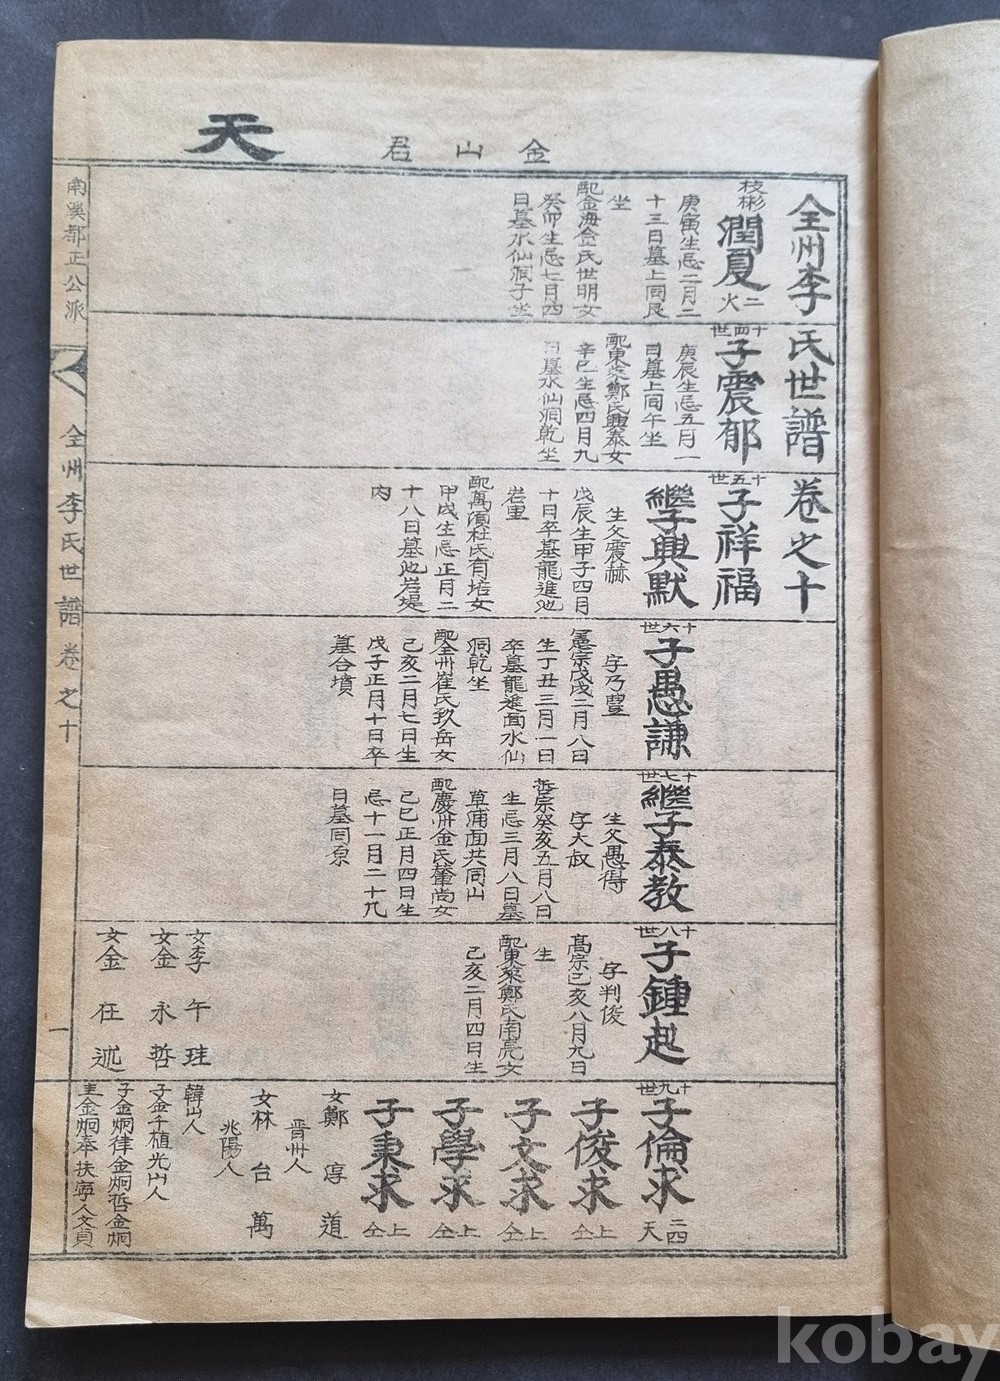 天
金山君
全州李氏世譜卷之十
枝彬
潤夏
二火
庚寅生忌二月二
十三日墓上同艮
坐
配金海金氏世明女
癸卯生忌七月四
日墓水仙洞子坐
十四世
子震郁
庚辰生忌五月一
日墓上同午坐
配東萊鄭氏興泰女
辛巳生忌四月九
日墓水仙洞乾坐
十五世
子祥福
繼子興默
生父震赫
戊辰生甲子四月
十日卒墓龍進池
岩里
配萬頃杜氏有培女
甲戌生忌正月二
十八日墓池岩堤
內
十六世
子愚謙
字乃豐
憲宗戊戌二月八日
生丁丑三月一日
卒墓龍進面水仙
洞乾坐
配全州崔氏玖岳女
己亥二月七日生
戊子正月十日卒
墓合墳
十七世
繼子泰教
生父愚得
字大叔
哲宗癸亥五月八日
生忌三月八日墓
草浦面共同山
配慶州金氏肇尚女
己巳正月四日生
忌十一月二十九
日墓同原
十八世
子鍾起
字判俊
高宗己亥八月九日
生
配東萊鄭氏南亮女
己亥二月四日生
女李午珪
女金永哲
女金在述
十九世
子倫求
二四天
子俊求
上仝
子文求
上仝
子學求
上仝
子秉求
上仝
女鄭淳道
晋州人
女林台萬
兆陽人
韓山人
子金千植光山人
子金炯律金炯哲金炯
圭金炯奉扶寧人文貞
南溪都正公派
全州李氏世譜卷之十
一
kobay